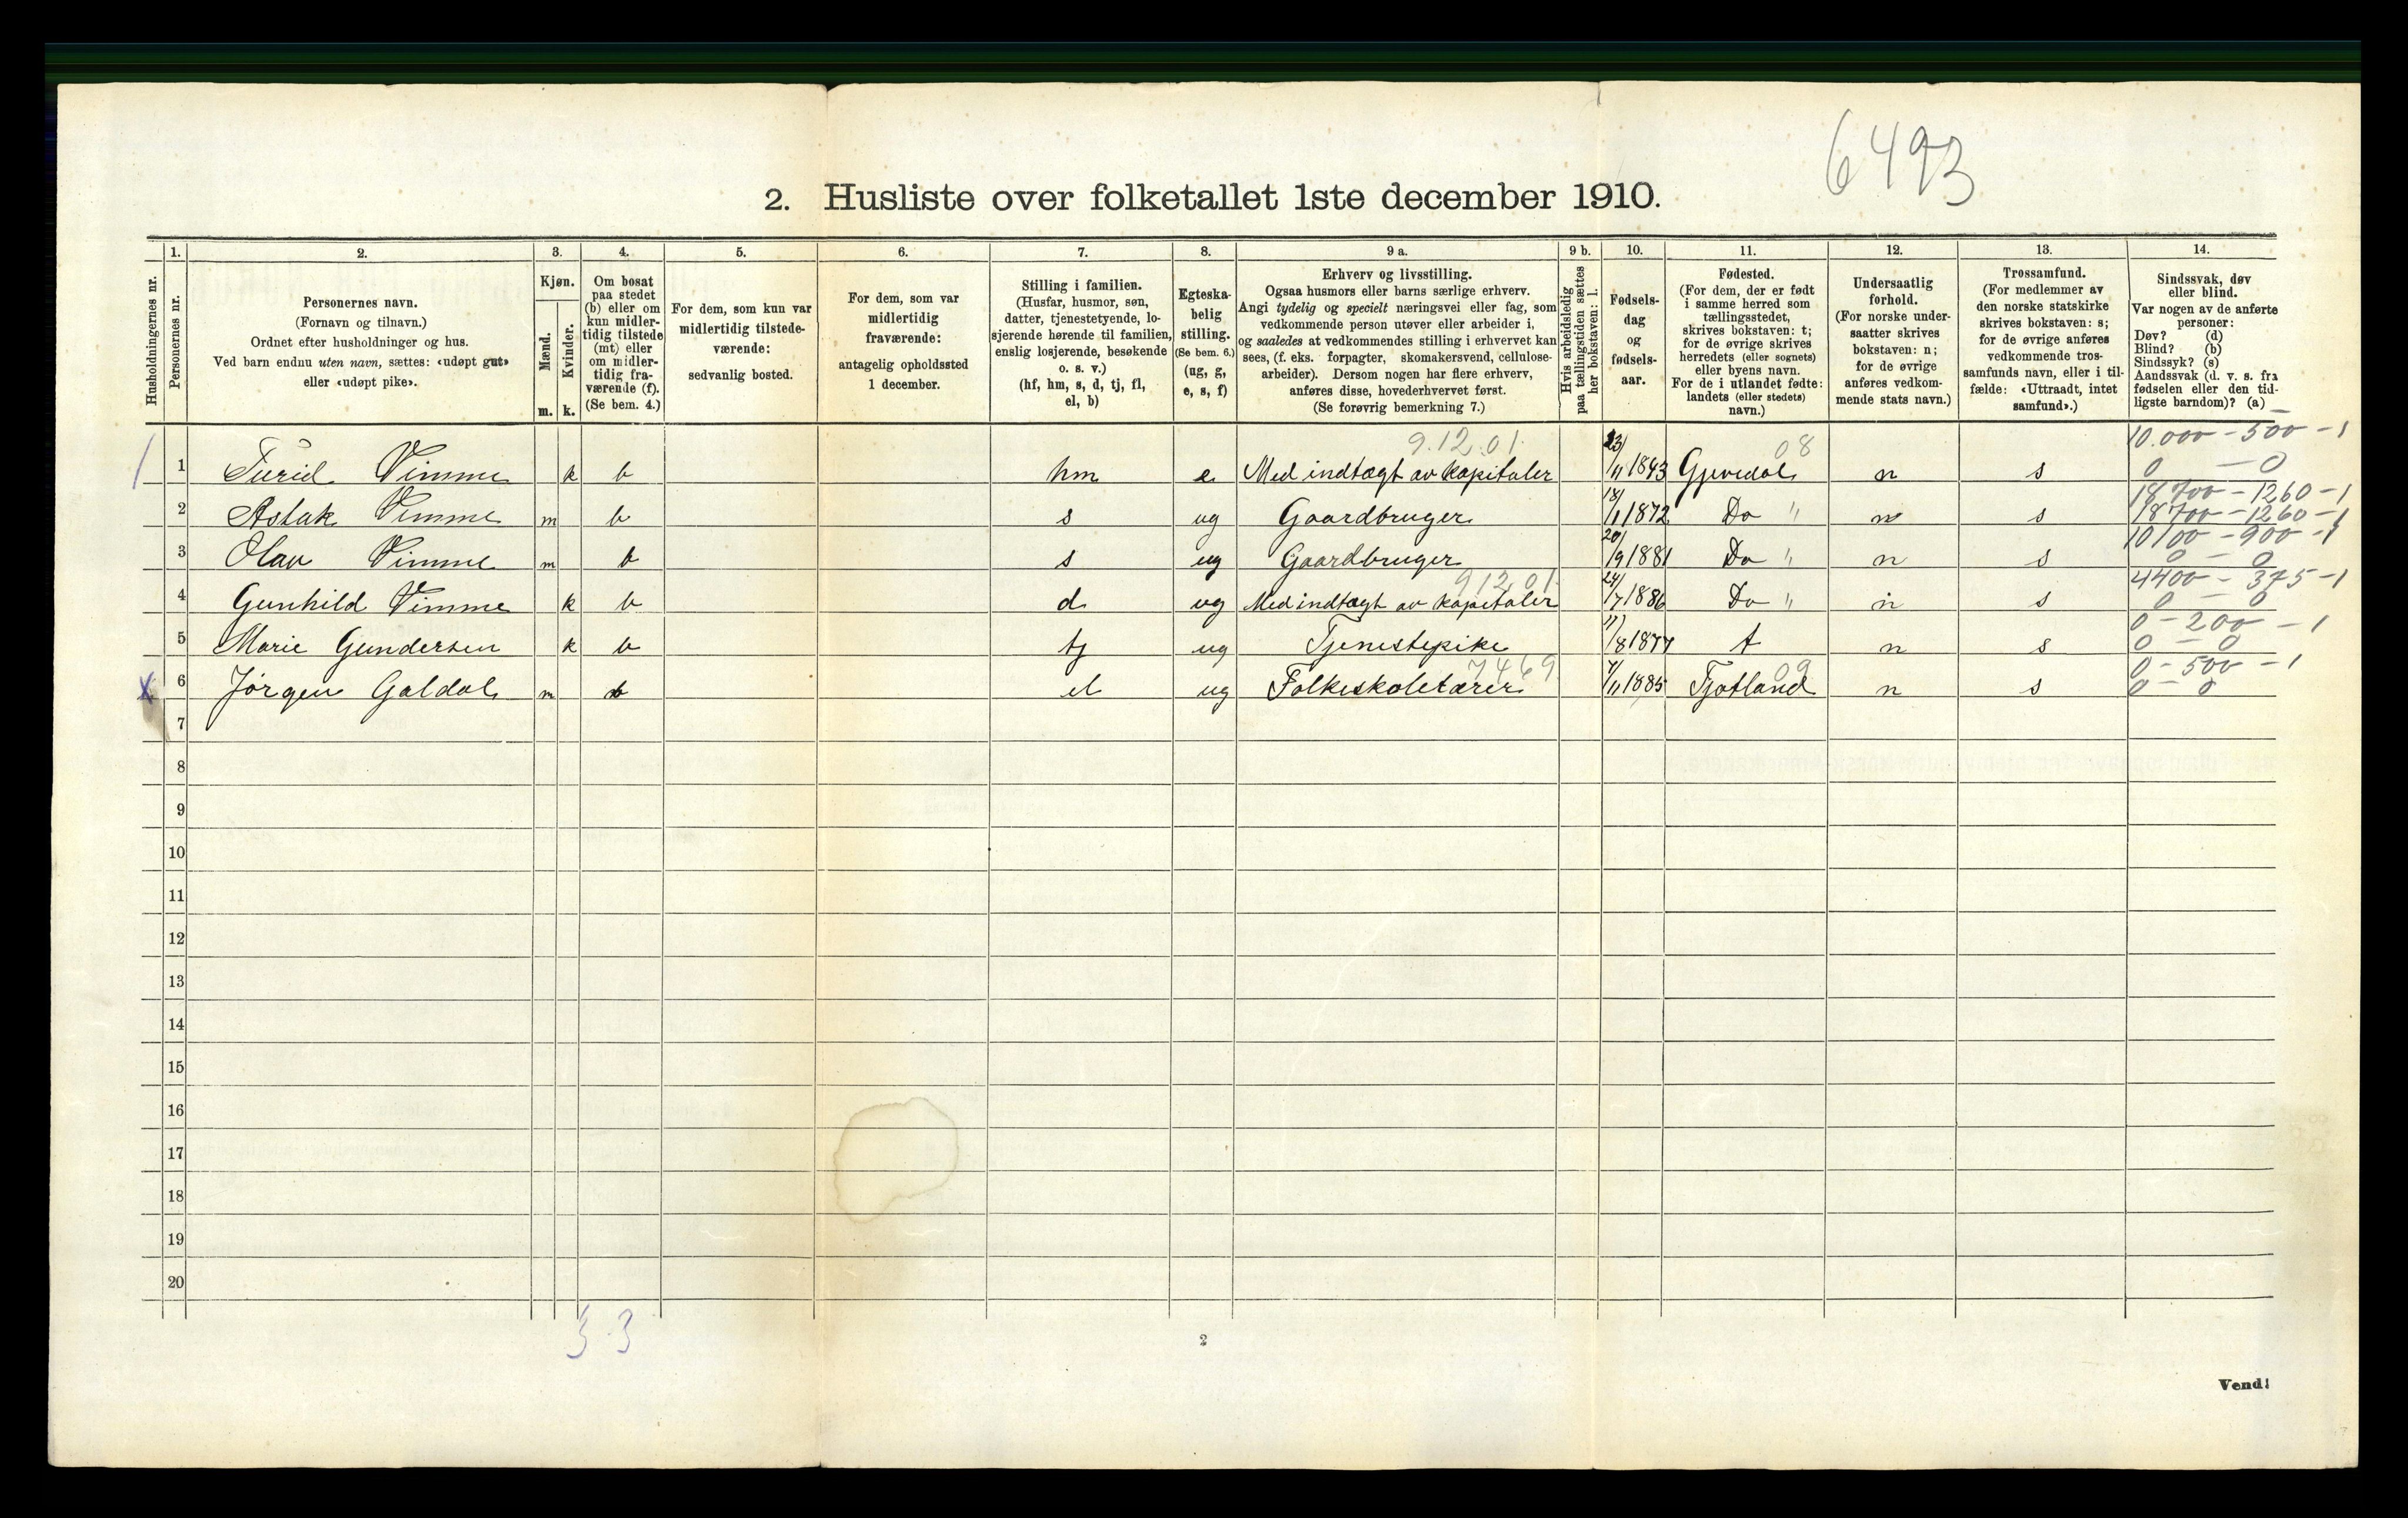 6493
2. Husliste over folketallet 1ste december 1910.
Husholdningernes nr.
1.
Personernes nr.
2.
Personernes navn.
(Fornavn og tilnavn.)
Ordnet efter husholdninger og hus.
Ved barn endnu uten navn, sættes: «udøpt gut»
eller «udøpt pike».
3.
Kjøn.
Mænd.
Kvinder.
m. k.
4.
Om bosat
paa stedet
(b) eller om
kun midler-
tidig tilstede
(mt) eller
om midler-
tidig fra-
værende (f).
(Se bem. 4.)
5.
For dem, som kun var
midlertidig tilstede-
værende:
sedvanlig bosted.
6.
For dem, som var
midlertidig
fraværende:
antagelig opholdssted
1 december.
7.
Stilling i familien.
(Husfar, husmor, søn,
datter, tjenestetyende, lo-
sjerende hørende til familien,
enslig losjerende, besøkende
o. s. v.)
(hf, hm, s, d, tj, fl,
el, b)
8.
Egteska-
belig
stilling.
(Se bem. 6.)
(ug, g,
e, s, f)
9 a.
Erhverv og livsstilling.
Ogsaa husmors eller barns særlige erhverv.
Angi tydelig og specielt næringsvei eller fag, som
vedkommende person utøver eller arbeider i,
og saaledes at vedkommendes stilling i erhvervet kan
sees, (f. eks. forpagter, skomakersvend, cellulose-
arbeider). Dersom nogen har flere erhverv,
anføres disse, hovederhvervet først.
(Se forøvrig bemerkning 7.)
9 b.
Hvis arbeidsledig
paa tællingstiden sættes
her bokstaven: l.
10.
Fødsels-
dag
og
fødsels-
aar.
11.
Fødested.
(For dem, der er født
i samme herred som
tællingsstedet,
skrives bokstaven: t;
for de øvrige skrives
herredets (eller sognets)
eller byens navn.
For de i utlandet fødte:
landets (eller stedets)
navn.)
12.
Undersaatlig
forhold.
(For norske under-
saatter skrives
bokstaven: n;
for de øvrige
anføres vedkom-
mende stats navn.)
13.
Trossamfund.
(For medlemmer av
den norske statskirke
skrives bokstaven: s;
for de øvrige anføres
vedkommende tros-
samfunds navn, eller i til-
fælde: «Uttraadt, intet
samfund».)
14.
Sindssvak, døv
eller blind.
Var nogen av de anførte
personer:
Døv? (d)
Blind? (b)
Sindssyk? (s)
Aandssvak (d. v. s. fra
fødselen eller den tid-
ligste barndom)? (a)
9.12.01. 08 10.000 - 500 - 1
1 Turid Vimme k b hm e Med indtægt av kapitaler 23/11 1843 Gjøvdal n s 0 - 0
18700 - 1260 - 1
2 Aslak Vimme m b s ug Gaardbruger 18/1 1872 Do " n s 18700 - 1260 - 1
10100 - 900 - 1
3 Olav Vimme m b s ug Gaardbruger 20/9 1881 Do " n s 0 - 0
9.12.01. 4400 - 375 - 1
4 Gunhild Vimme k b d ug Med indtægt av kapitaler 24/7 1886 Do " n s 0 - 0
0 - 200 - 1
5 Marie Gundersen k b tj ug Tjenestepike 11/8 1877 t n s 0 - 0
7469 09 0 - 500 - 1
x 6 Jørgen Galdal m b el ug Folkeskolelærer 4/11 1885 Tjotland n s 0 - 0
7
8
9
10
11
12
13
14
15
16
17
18
19
20
3 3
2
Vend!